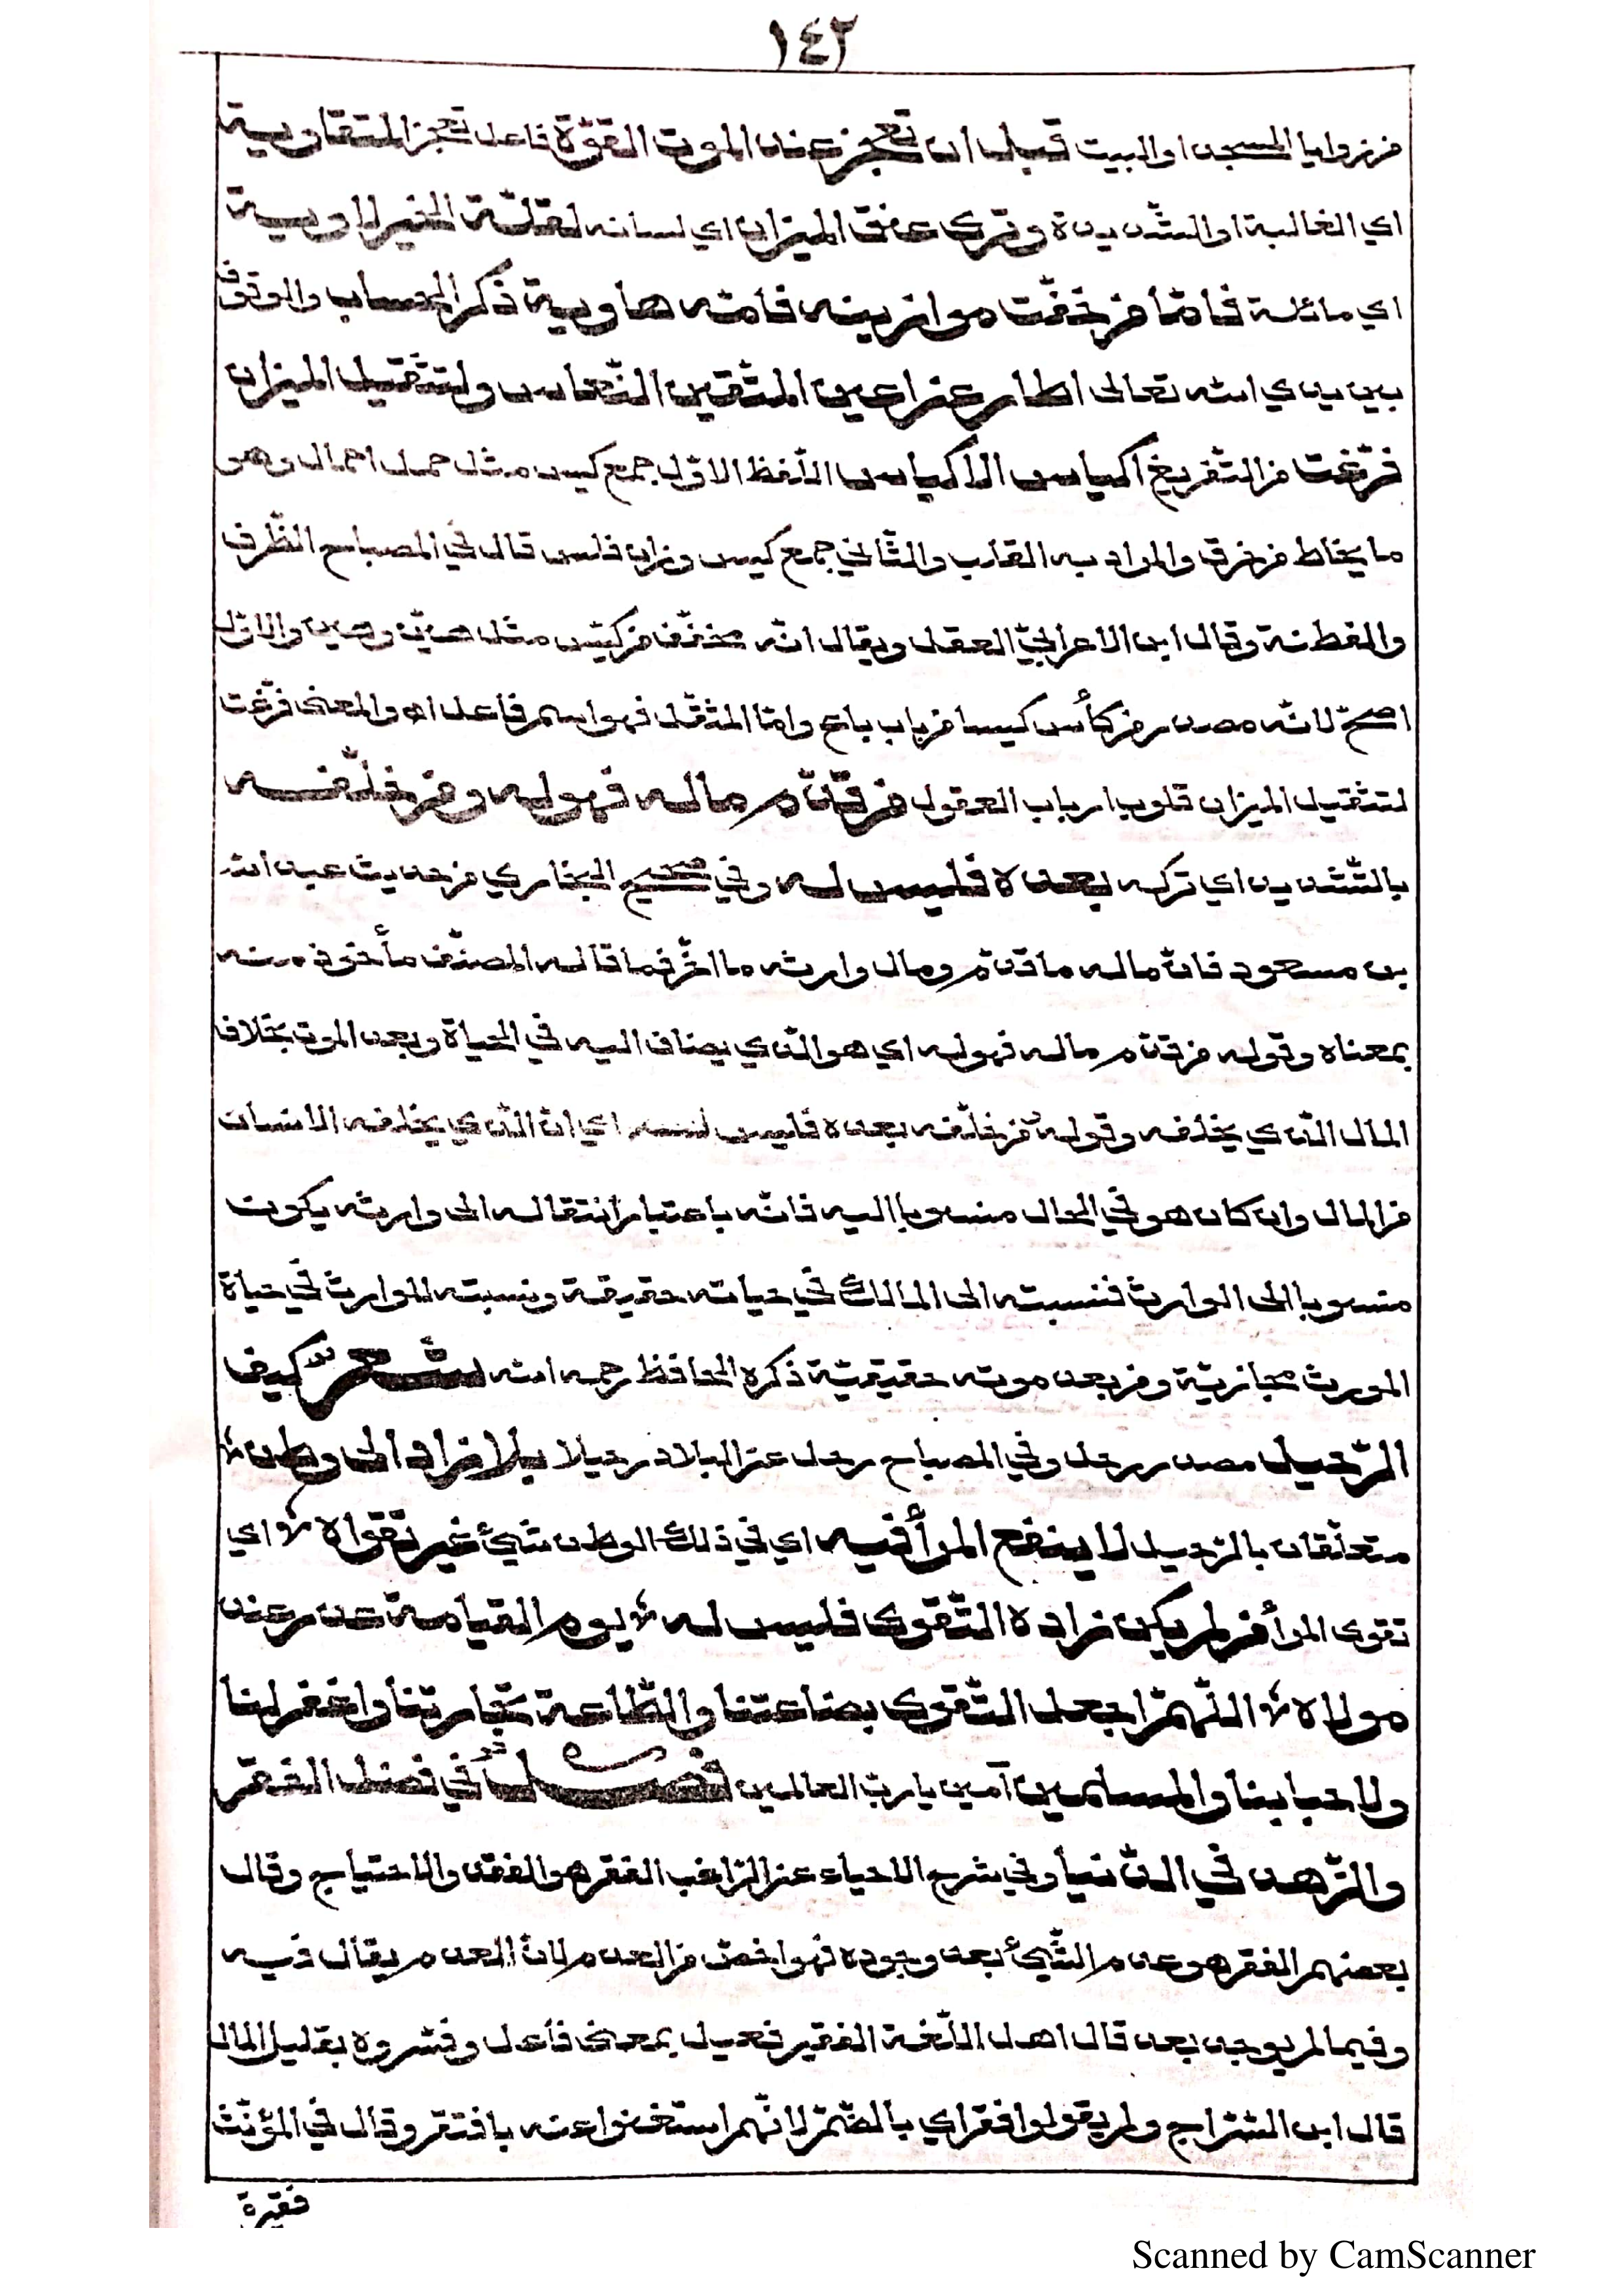 ١٤٢
من زوايا المسجد او البيت قبل ان تعجز عند الموت القوّة فاعل تعجز المتقاوية
اي الغالبة او الشّديدة وترى عنق الميزان اي لسانه لقلّة الخير لاوية
اي مائلة فامّا من خفّت موازينه فامّه هاوية ذكر الحساب والوقوف
بين يدي الله تعالى اطار عن اعين المتّقين النّعاس ولتثقيل الميزان
فرّغت من التّفريغ اكياس الاكياس اللّفظ الاوّل جمع كيس مثل حمل احمال وهو
ما يخاط من خرق والمراد به القلب والثّاني جمع كيس وزان فلس قال في المصباح الظّرف
والفطنة وقال ابن الاعرابيّ العقل ويقال انّه مخفّف من كيّس مثل هيّن وهين والاوّل
اصحّ لانّه مصدر من كأس كيسا من باب باع وامّا المثقّل فهو اسم فاعل اه والمعنى فرّغت
لتثقيل الميزان قلوب ارباب العقول من قدّم ماله فهو له ومن خلّفه
بالتّشديد اي تركه بعده فليس له وفي صحيح البخاري من حديث عبد الله
بن مسعود فانّ ماله ما قدّم ومال وارثه ما اخّر فما قاله المصنّف مأخوذ منه
بمعناه وقوله من قدّم ماله فهو له اي هو الّذي يضاف اليه في الحياة وبعد الموت بخلاف
المال الّذي يخلفه وقوله من خلّفه بعده فليس له اي انّ الّذي يخلفه الانسان
من المال وان كان هو في الحال منسوبا اليه فانّه باعتبار انتقاله الى وارثه يكون
منسوبا الى الوارث فنسبته الى المالك في حياته حقيقة ونسبته للوارث في حياة
المورث مجازيّة ومن بعد موته حقيقيّة ذكره الحافظ رحمه الله شعر كيف
الرّحيل مصدر رحل وفي المصباح رحل عن البلاد رحيلا بلا زاد الى وطن
متعلّقان بالرّحيل لا ينفع المرأ فيه اي في ذلك الوطن شيئ غير تقواه اي
تقوى المرأ من لم يكن زاده التّقوى فليس له يوم القيامة عذر عند
مولاه اللّهمّ اجعل التّقوى بضاعتنا والطّاعة تجارتنا واغفر لنا
ولاحبابنا والمسلمين آمين يا ربّ العالمين فصل في فضل الفقر
والزّهد في الدّنيا وفي شرح الاحياء عن الرّاغب الفقر هو الفقد والاحتياج وقال
بعضهم الفقر هو عدم الشّيئ بعد وجوده فهو اخصّ من العدم لانّ العدم يقال فيه
وفيما لم يوجد بعد قال اهل اللّغة الفقير فعيل بمعنى فاعل وفسّروه بقليل المال
قال ابن السّرّاج ولم يقولوا فقر اي بالضّمّ لانّهم استغنوا عنه بافتقر وقال في المؤنّث
فقيرة
Scanned by CamScanner